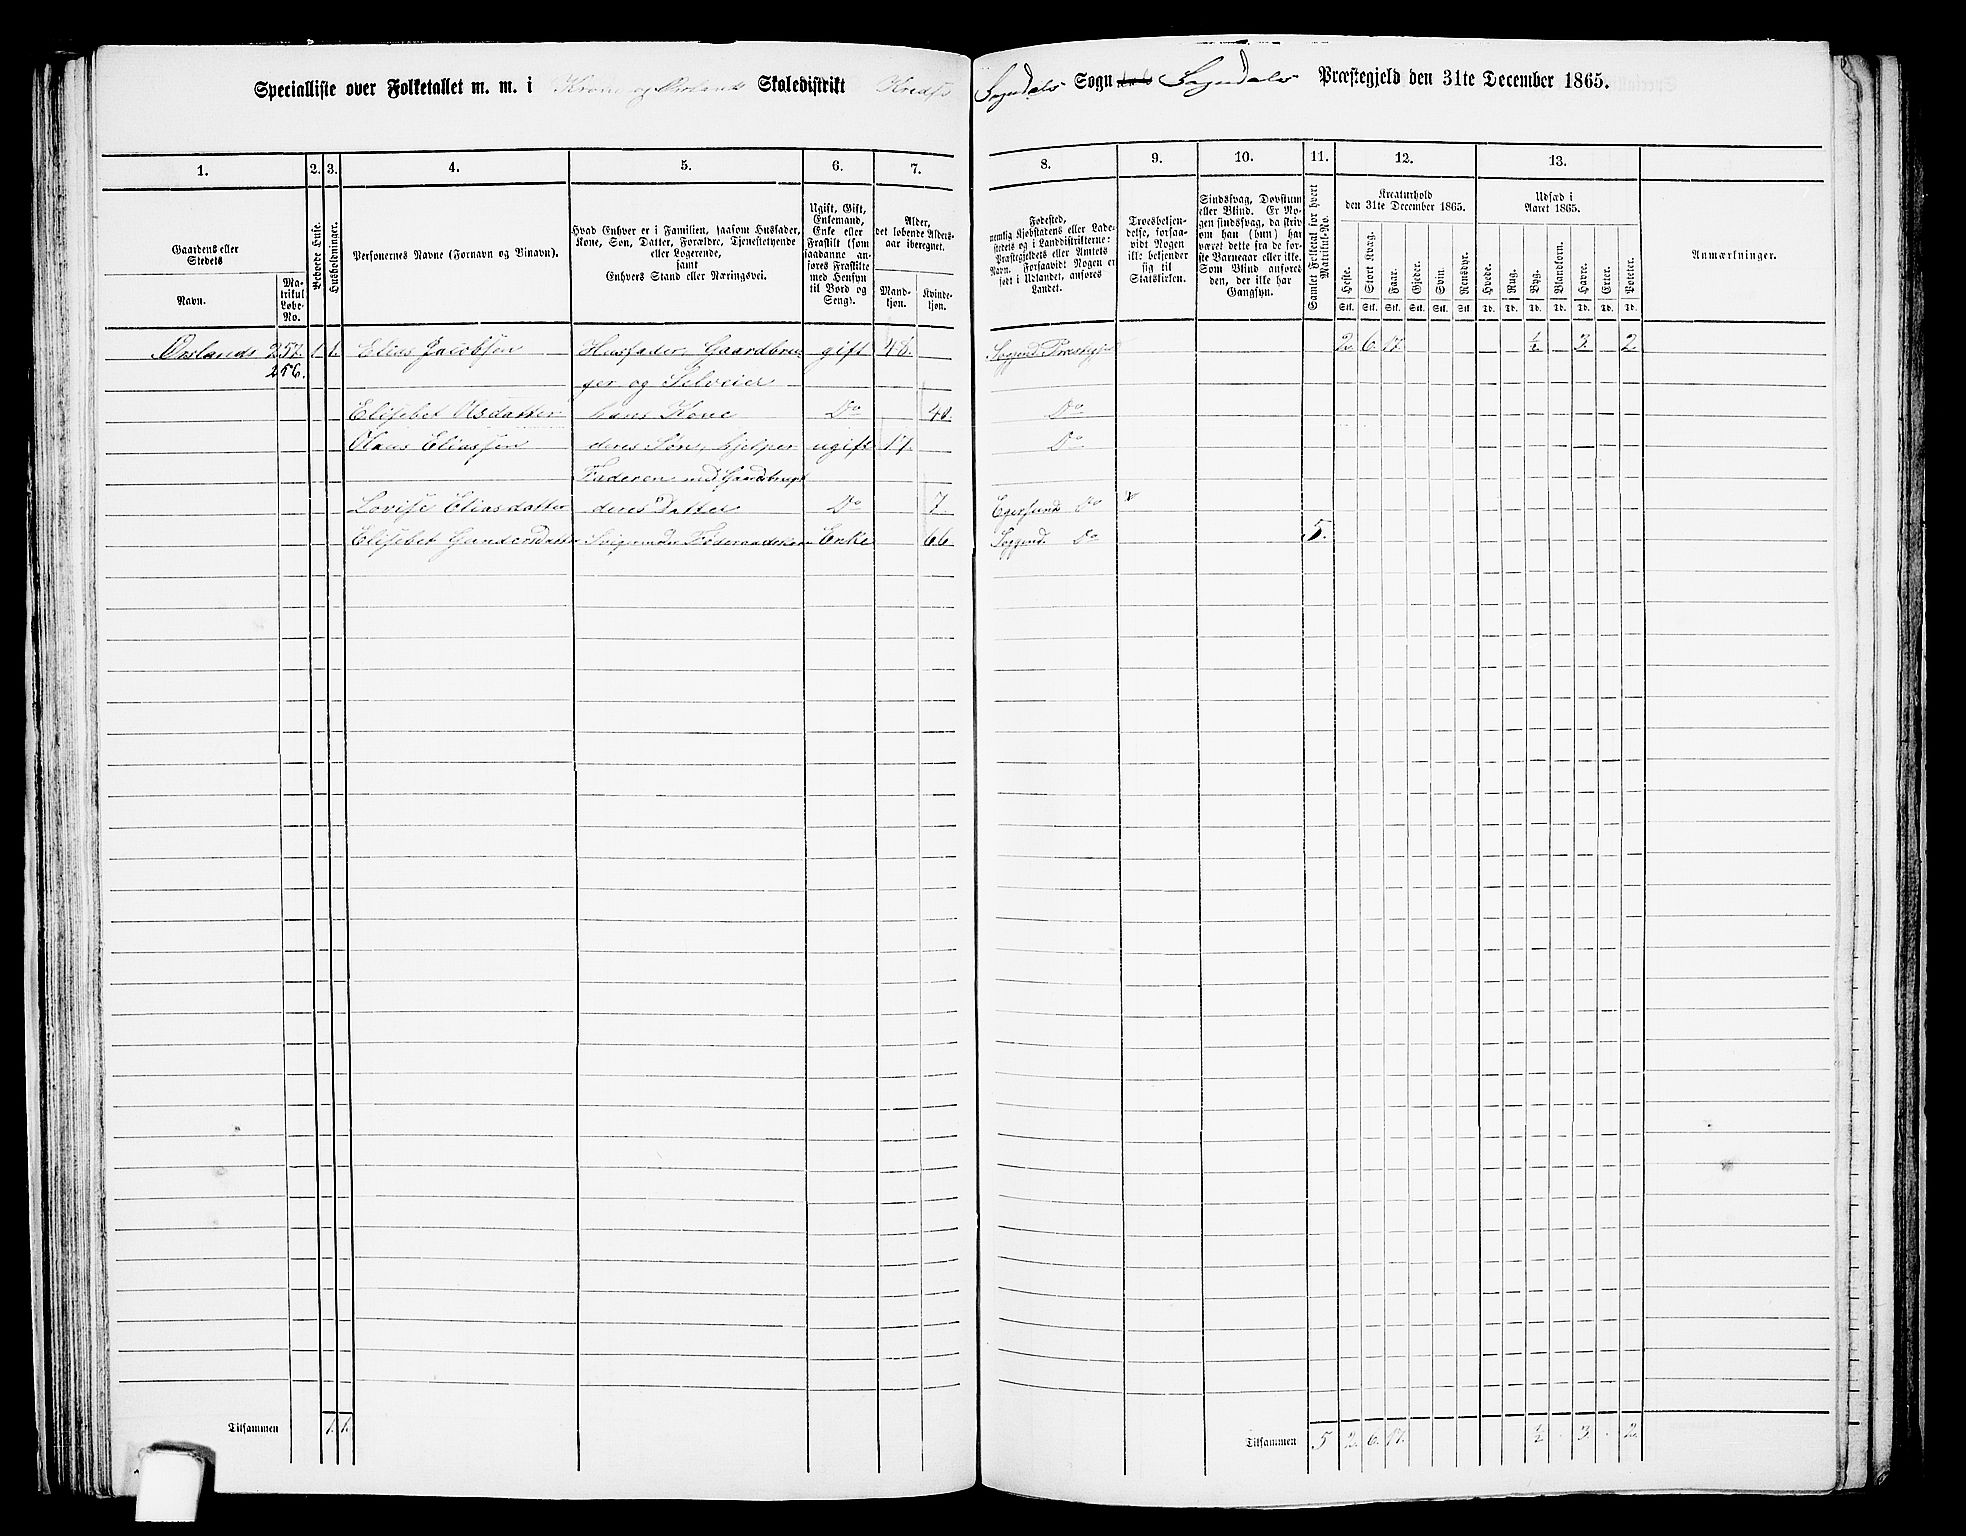 Specialliste over Folketallet m. m. i Krone og Ørslands Skoledistrikt Kreds
Sogndals Sogn Sogndals Præstegjeld den 31te December 1865.
1. 2. 3. 4. 5. 6. 7. 8. 9. 10. 11. 12. 13.
Gaardens eller Stedets
Navn.
Matrikul Løbe-No.
Beboede Huse.
Husholdninger.
Personernes Navne (Fornavn og Binavn).
Hvad Enhver er i Familien, saasom Husfader,
Kone, Søn, Datter, Forældre, Tjenestetyende
eller Logerende,
samt
Enhvers Stand eller Næringsvei.
Ugift, Gift,
Enkemand,
Enke eller
Fraskilt (som
saadanne an-
føres Fraskilte
med Hensyn
til Bord og
Seng).
Alder,
det løbende Alders-
aar iberegnet.
Mand-
kjøn.
Kvinde-
kjøn.
Fødested,
nemlig Kjøbstadens eller Lade-
stedets og i Landdistrikterne:
Præstegjeldets eller Amtets
Navn. Forsaavidt Nogen er
født i Udlandet, anføres
Landet.
Troesbekjen-
delse, forsaa-
vidt Nogen
ikke bekjender
sig til
Statskirken.
Sindssvag, Døvstum
eller Blind. Er No-
gen sindssvag, da skriv
om han (hun) har
været dette fra de før-
ste Barneaar eller ikke.
Som Blind anføres
den, der ikke har
Gangsyn.
Samlet Folketal for hvert Matrikul-No.
Kreaturhold
den 31te December 1865.
Heste. Stort Kvæg. Faar. Gjeder. Svin. Rensdyr.
Stk. Stk. Stk. Stk. Stk. Stk.
Udsæd i
Aaret 1865.
Hvede. Rug. Byg. Blandkorn. Havre. Erter. Poteter.
Td. Td. Td. Td. Td. Td. Td.
Anmærkninger.
Ørslands 257. 1. 1. Elias Jacobsen Husfader, Gaardbru- gift 48. Soggend. Præstegjeld 2. 6. 17. ½. 3. 2.
256. ger og Selveier
Elisebet Olsdatter hans Kone Do 40. Do
Olaus Eliassen deres Søn, hjelper ugift 17. Do
Faderen med Gaardsbruget
Lovise Eliasdatter deres Datter Do 7. Egersund Do
Elisebet Gundersdatter Svigermoder Føderaadskone Enke 66. Soggend. Do 5.
Tilsammen 1. 1.
Tilsammen 5 2. 6. 17. ½ 3. 2.